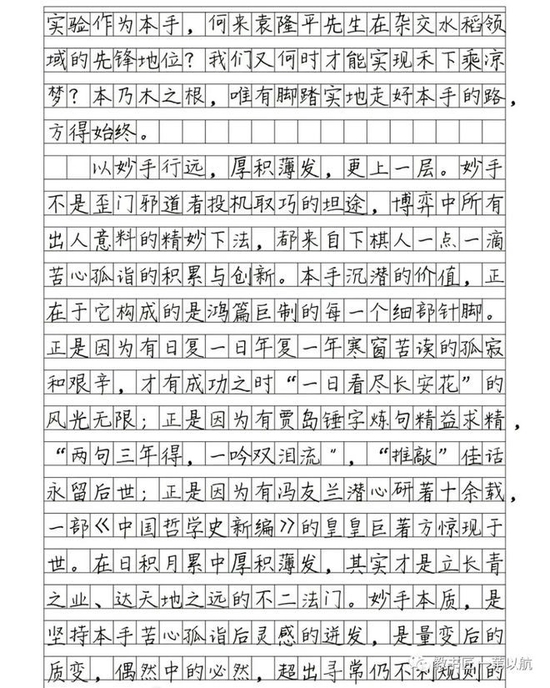 实验作为本手，何来袁隆平先生在杂交水稻领
域的先锋地位？我们又何时才能实现禾下乘凉
梦？本乃木之根，唯有脚踏实地走好本手的路，
方得始终。
以妙手行远，厚积薄发，更上一层。妙手
不是歪门邪道者投机取巧的坦途，博弈中所有
出人意料的精妙下法，都来自下棋人一点一滴
苦心孤诣的积累与创新。本手沉潜的价值，正
在于它构成的是鸿篇巨制的每一个细部针脚。
正是因为有日复一日年复一年寒窗苦读的孤寂
和艰辛，才有成功之时“一日看尽长安花”的
风光无限；正是因为有贾岛锤字炼句精益求精，
“两句三年得，一吟双泪流”，“推敲”佳话
永留后世；正是因为有冯友兰潜心研著十余载，
一部《中国哲学史新编》的皇皇巨著方惊现于
世。在日积月累中厚积薄发，其实才是立长青
之业、达天地之远的不二法门。妙手本质，是
坚持本手苦心孤诣后灵感的迸发，是量变后的
质变，偶然中的必然，超出寻常仍不利规则的
一苇以航